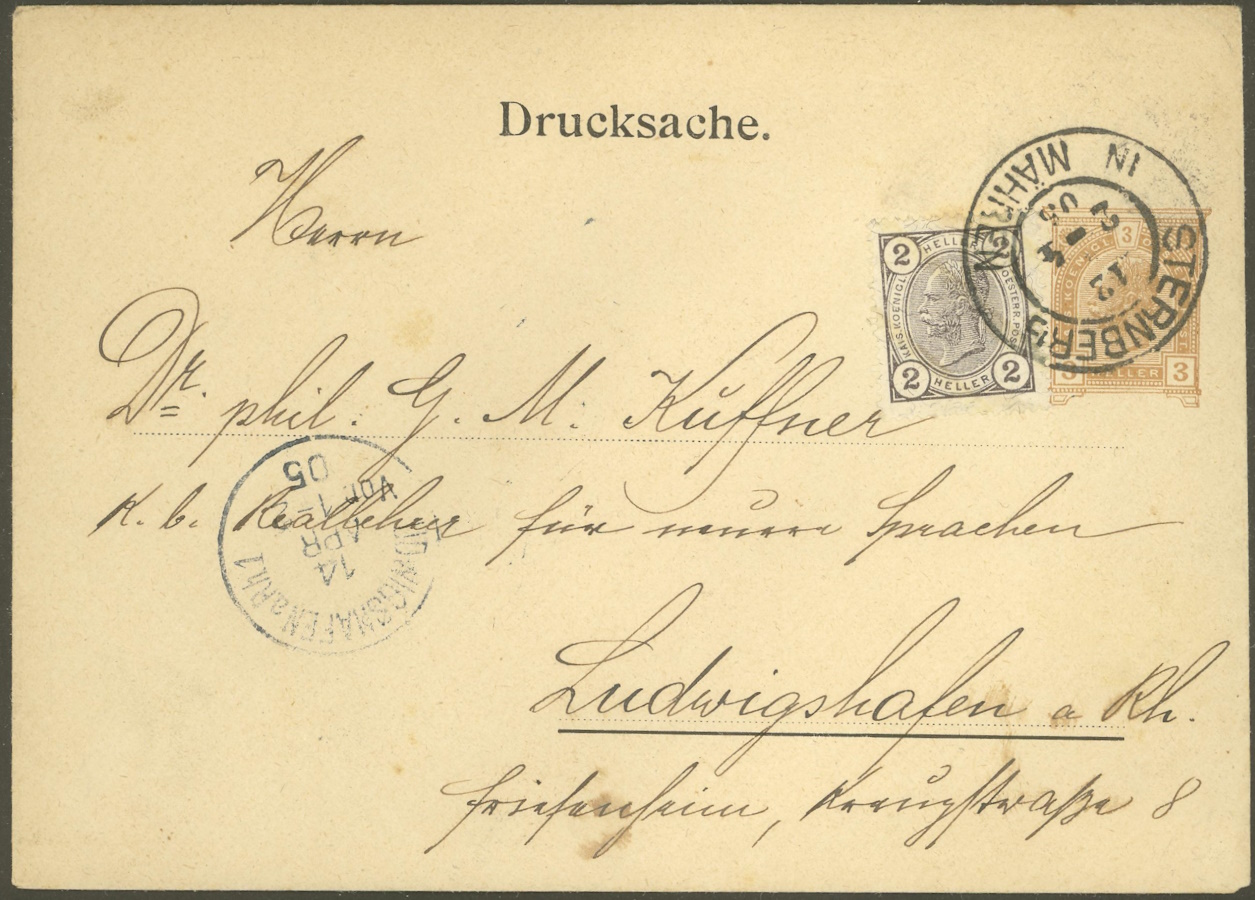 Drucksache.
Herrn
Dr. phil. G. M. Kuffner
K. b. Reallehrer für neuere Sprachen
Ludwigshafen a Rh.
Friesenheim, Kreuzstraße 8
2 HELLER 2
KAIS. KOENIGL. OESTERR. POST
2 HELLER 2
3
KOENIGL
3 HELLER 3
STERNBERG IN MÄHREN
12 4 05
LUDWIGSHAFEN a. RH. 1
14 APR
05